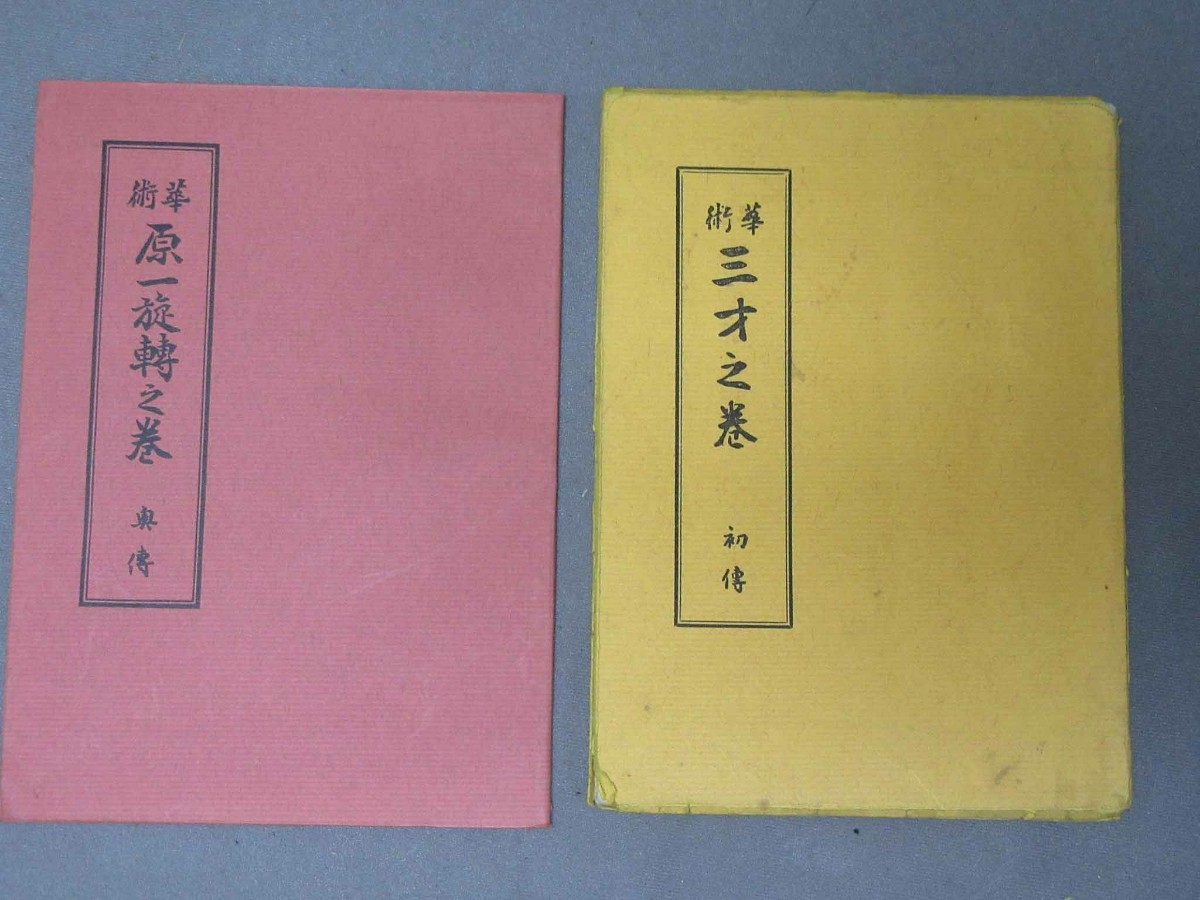 華術
原一旋轉之巻
奥傳
華術
三才之巻
初傳